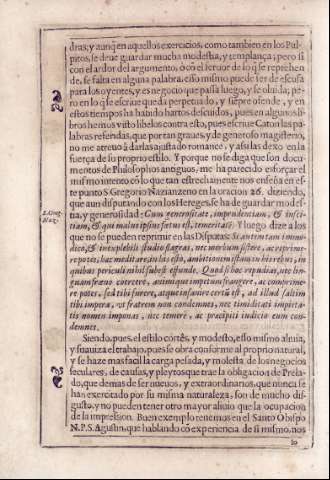 dras; y aunq̃ en aquellos exercicios, como tambien en los Pul-
pitos, se deue guardar mucha modestia, y templança; pero si
con el ardor del argumento, ò con el feruor de lo q̃ se reprehen
de, se falta en alguna palabra, esso mismo puede ser de escusa
para los oyentes, y es negocio que passa luego, y se oluida; pe-
ro en lo q̃ se escriue queda perpetuado, y siẽpre ofende, y en
estos tiempos ha hauido hartos descuidos, pues en algunos li-
bros hemos visto libelos contra esto, pues escriue Caton las pa-
labras referidas, que por tan graues, y de gente tan
no me atreuo à darlas ajustado romance, y assi las dexo en la
fuerça de su proprio estilo. Y porque no se diga que son docu-
mentos de Philosophos antiguos, me ha parecido enforçar el
mismo intento cõ lo que tan estrechamente nos enseña en es-
te punto S. Gregorio Nazanzeno en la oracion 26. diziendo,
que aun disputando con los Hereges, se ha de guardar modes-
S. Greg.
Naz.
tia, y generosidad: Cum generositate, imprudentiam, & insci-
tiam, & qui malus ipsius fatus est, temeritatẽ. Y luego dize a los
que no se pueden reprimir en las Disputas: Si autem tam immo-
dico, & inexplebili studio flagras, nec morbum sistere, ac reprime-
re potes, hac meditare, in his esto, ambitionem istam in his rebus, in
quibus periculi nihil subest effunde. Quod si hac repudias, nec lin-
guam frano cohercere, animique impetum frangere, ac comprime-
re potes, sed tibi furere, atque insanire certũ est, ad illud saltim
tibi impera, vt fratrem non condemnes, nec timiditati impieta-
tis nomen imponas, nec temerè, ac præcipiti iudicio eum con-
demnes.
Siendo, pues, el estilo cortès, y modesto, esso mismo aliuia,
y suauiza el trabajo, pues se obra conforme al proprio natural,
y se haze mas facil la carga pesada, y molesta de los negocios
seculares, de causas, y pleytos que trae la obligacion de Prela-
do, que demas de ser nueuos, y extraordinarios, que nunca se
han exercitado por su misma naturaleza, son de mucho dis-
gusto, y no pueden tener otro mayor aliuio que la ocupacion
de la impression. Buen exemplo tenemos en el Santo Obispo
N.P.S. Agustin, que hablando cõ experiencia de si mismo, nos